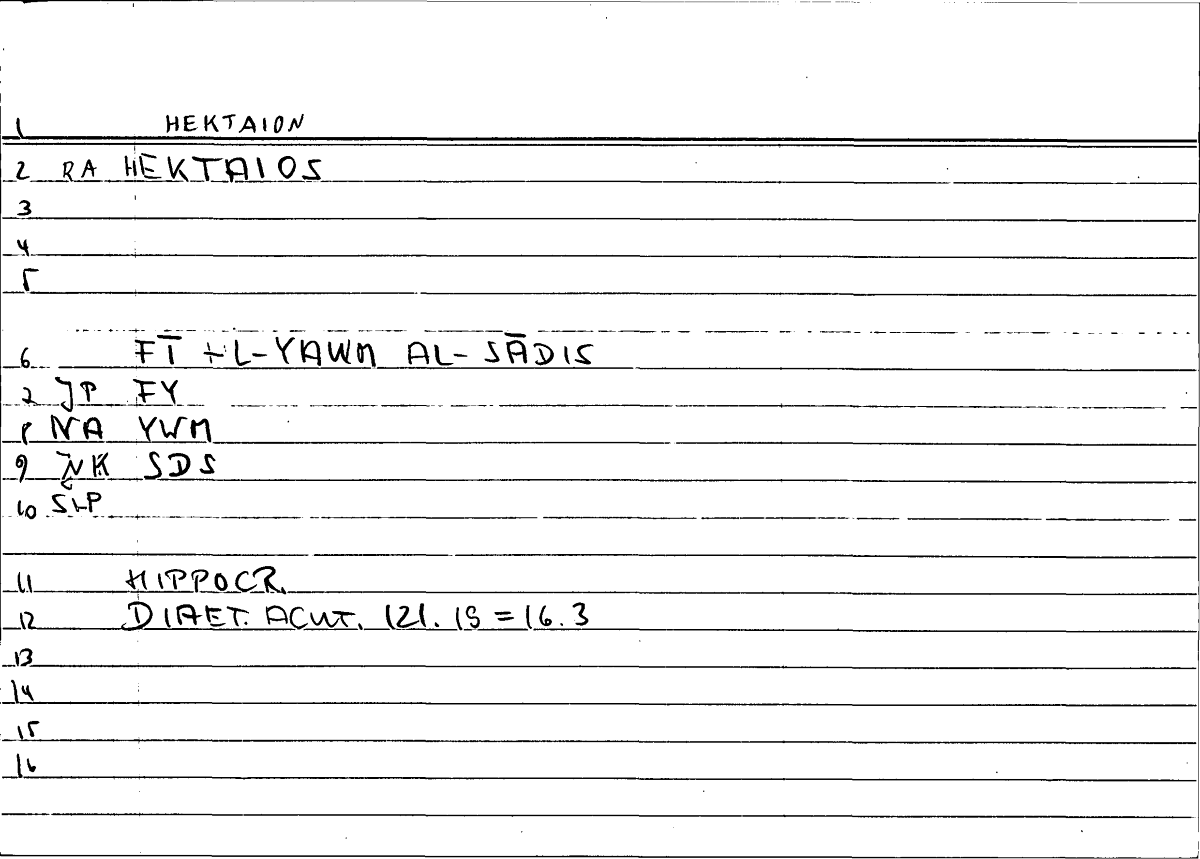 1 HEKTAION
2 RA HEKTAIOS
3
4
5
6 FĪ AL-YAWM AL-SĀDIS
7 JP FY
8 NA YWM
9 NK SDS
10 SLP
11 HIPPOCR.
12 DIAET. ACUT. 121. 19 = 16.3
13
14
15
16